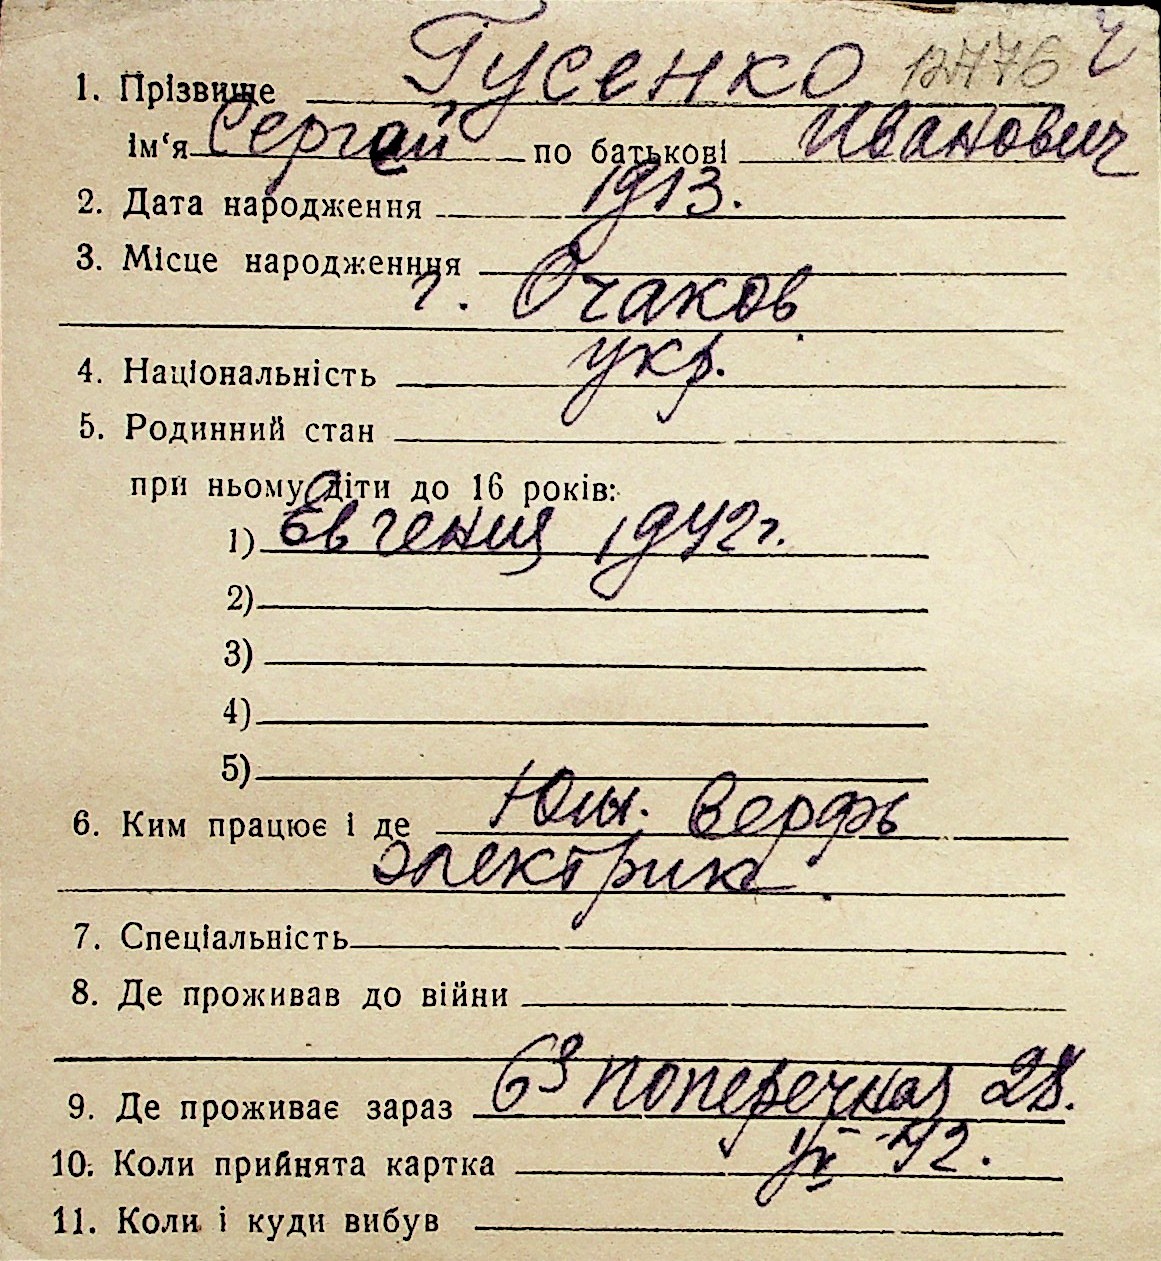 1. Прізвище Гусенко 12776 Ч
ім‘я Сергей по батькові Иванович
2. Дата народження 1913.
3. Місце народженння
г. Очаков
4. Національність укр.
5. Родинний стан
при ньому діти до 16 років:
1) Евгения 1942 г.
2)
3)
4)
5)
6. Ким працює і де Юж. верфь
электрик.
7. Спеціальність
8. Де проживав до війни
9. Де проживає зараз 6я поперечная 28.
10. Коли прийнята картка 42.
11. Коли і куди вибув